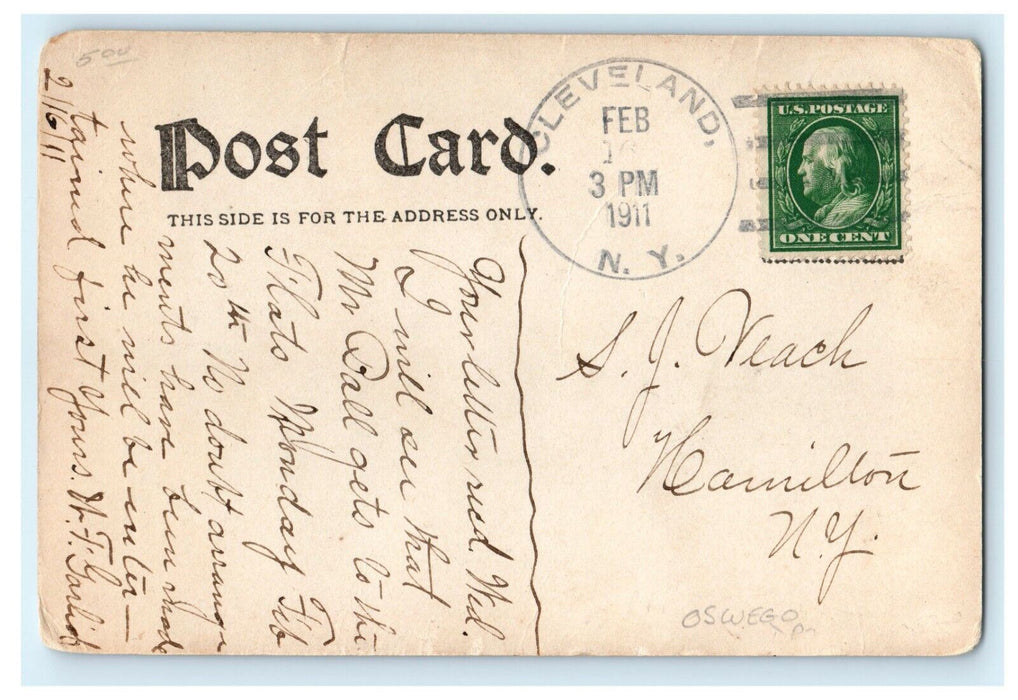 5 00
Post Card.
THIS SIDE IS FOR THE ADDRESS ONLY.
CLEVELAND,
FEB
16
3 PM
1911
N. Y.
U.S. POSTAGE
ONE CENT
S. J. Veach
Hamilton
N.Y.
OSWEGO
Your letter recd. Wed.
I will see that
Mr Ball gets to the
Thats Monday Feb
20th No doubt arrange
ments have been made
where he will be enter-
tained first Yours. W. F.
2/16/11